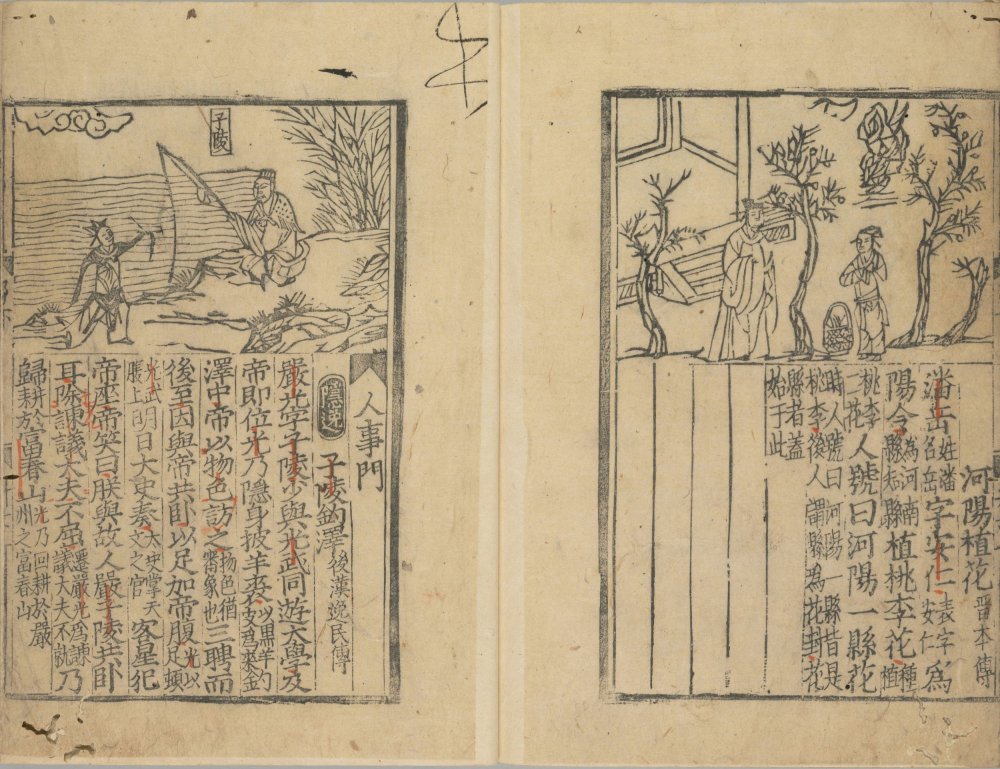 河陽植花 晉本傳
潘岳姓潘名岳字安仁表字安仁為
陽令為河南縣知縣植桃李花種植
桃李二花人號曰河陽一縣花
時人號曰河陽一縣皆是
桃李後人謂縣為花封花
縣者蓋
始于此
子陵
人事門
隱逸
子陵釣澤 後漢逸民傳
嚴光字子陵少與光武同遊大學及
帝即位光乃隱身披羊裘以黑羊皮為裘釣
澤中帝以物色訪之物色猶象也三聘而
後至因與帝共臥以足加帝腹光以足頓
光武腹上明日大史奏大史掌天文之官客星犯
帝座帝笑曰朕與故人嚴子陵共臥
耳除諫議大夫不屈遷嚴光為諫議大夫不就乃
歸耕於富春山光乃回耕於嚴州之富春山